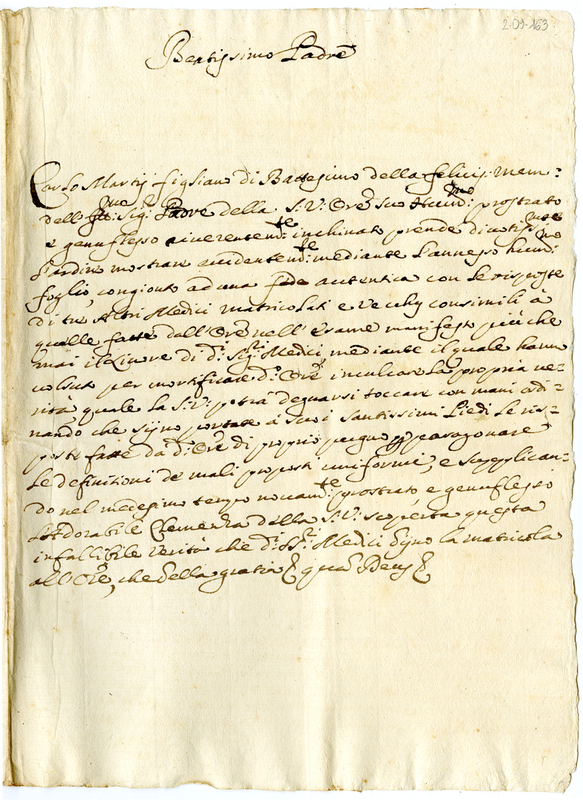 2-09-163
Beatissimo Padre
Carlo Martij figliano di Battesimo della felicis: mem:
dell' Sig.r Padre della S.V: Ore suo Humo: prostrato
e genuflesso riverentemte: inchinato prende d'
l'ardire mostrare evidentemte: mediante l'annesso humo:
foglio, congionto ad una fede autentica con le risposte
di tre Altri Medici matricolati e Vecchy consimili a
quelle fatte dall' Ore nell' esame manifesto più che
mai il livore di di: SSri: Medici, mediante il quale hanno
voluto per mortificare do: Ore inculcare la propria ve-
rità quale la S.V: potrà degnarsi toccare con mani ordi-
nando che siyno portate a suoi Santissimi Piedi le ris-
poste fatte da do: Ore di proprio pugno paragonare
le definitioni de mali proposti uniformi, e supplican-
do nel medesimo tempo novamte: prostrato e genuflesso
l'Adorabile Clemenza della S.V: scoperta questa
infallibile Verità che di: SSri: Medici dyno la matricola
all' Ore, che della gratia quam Deus